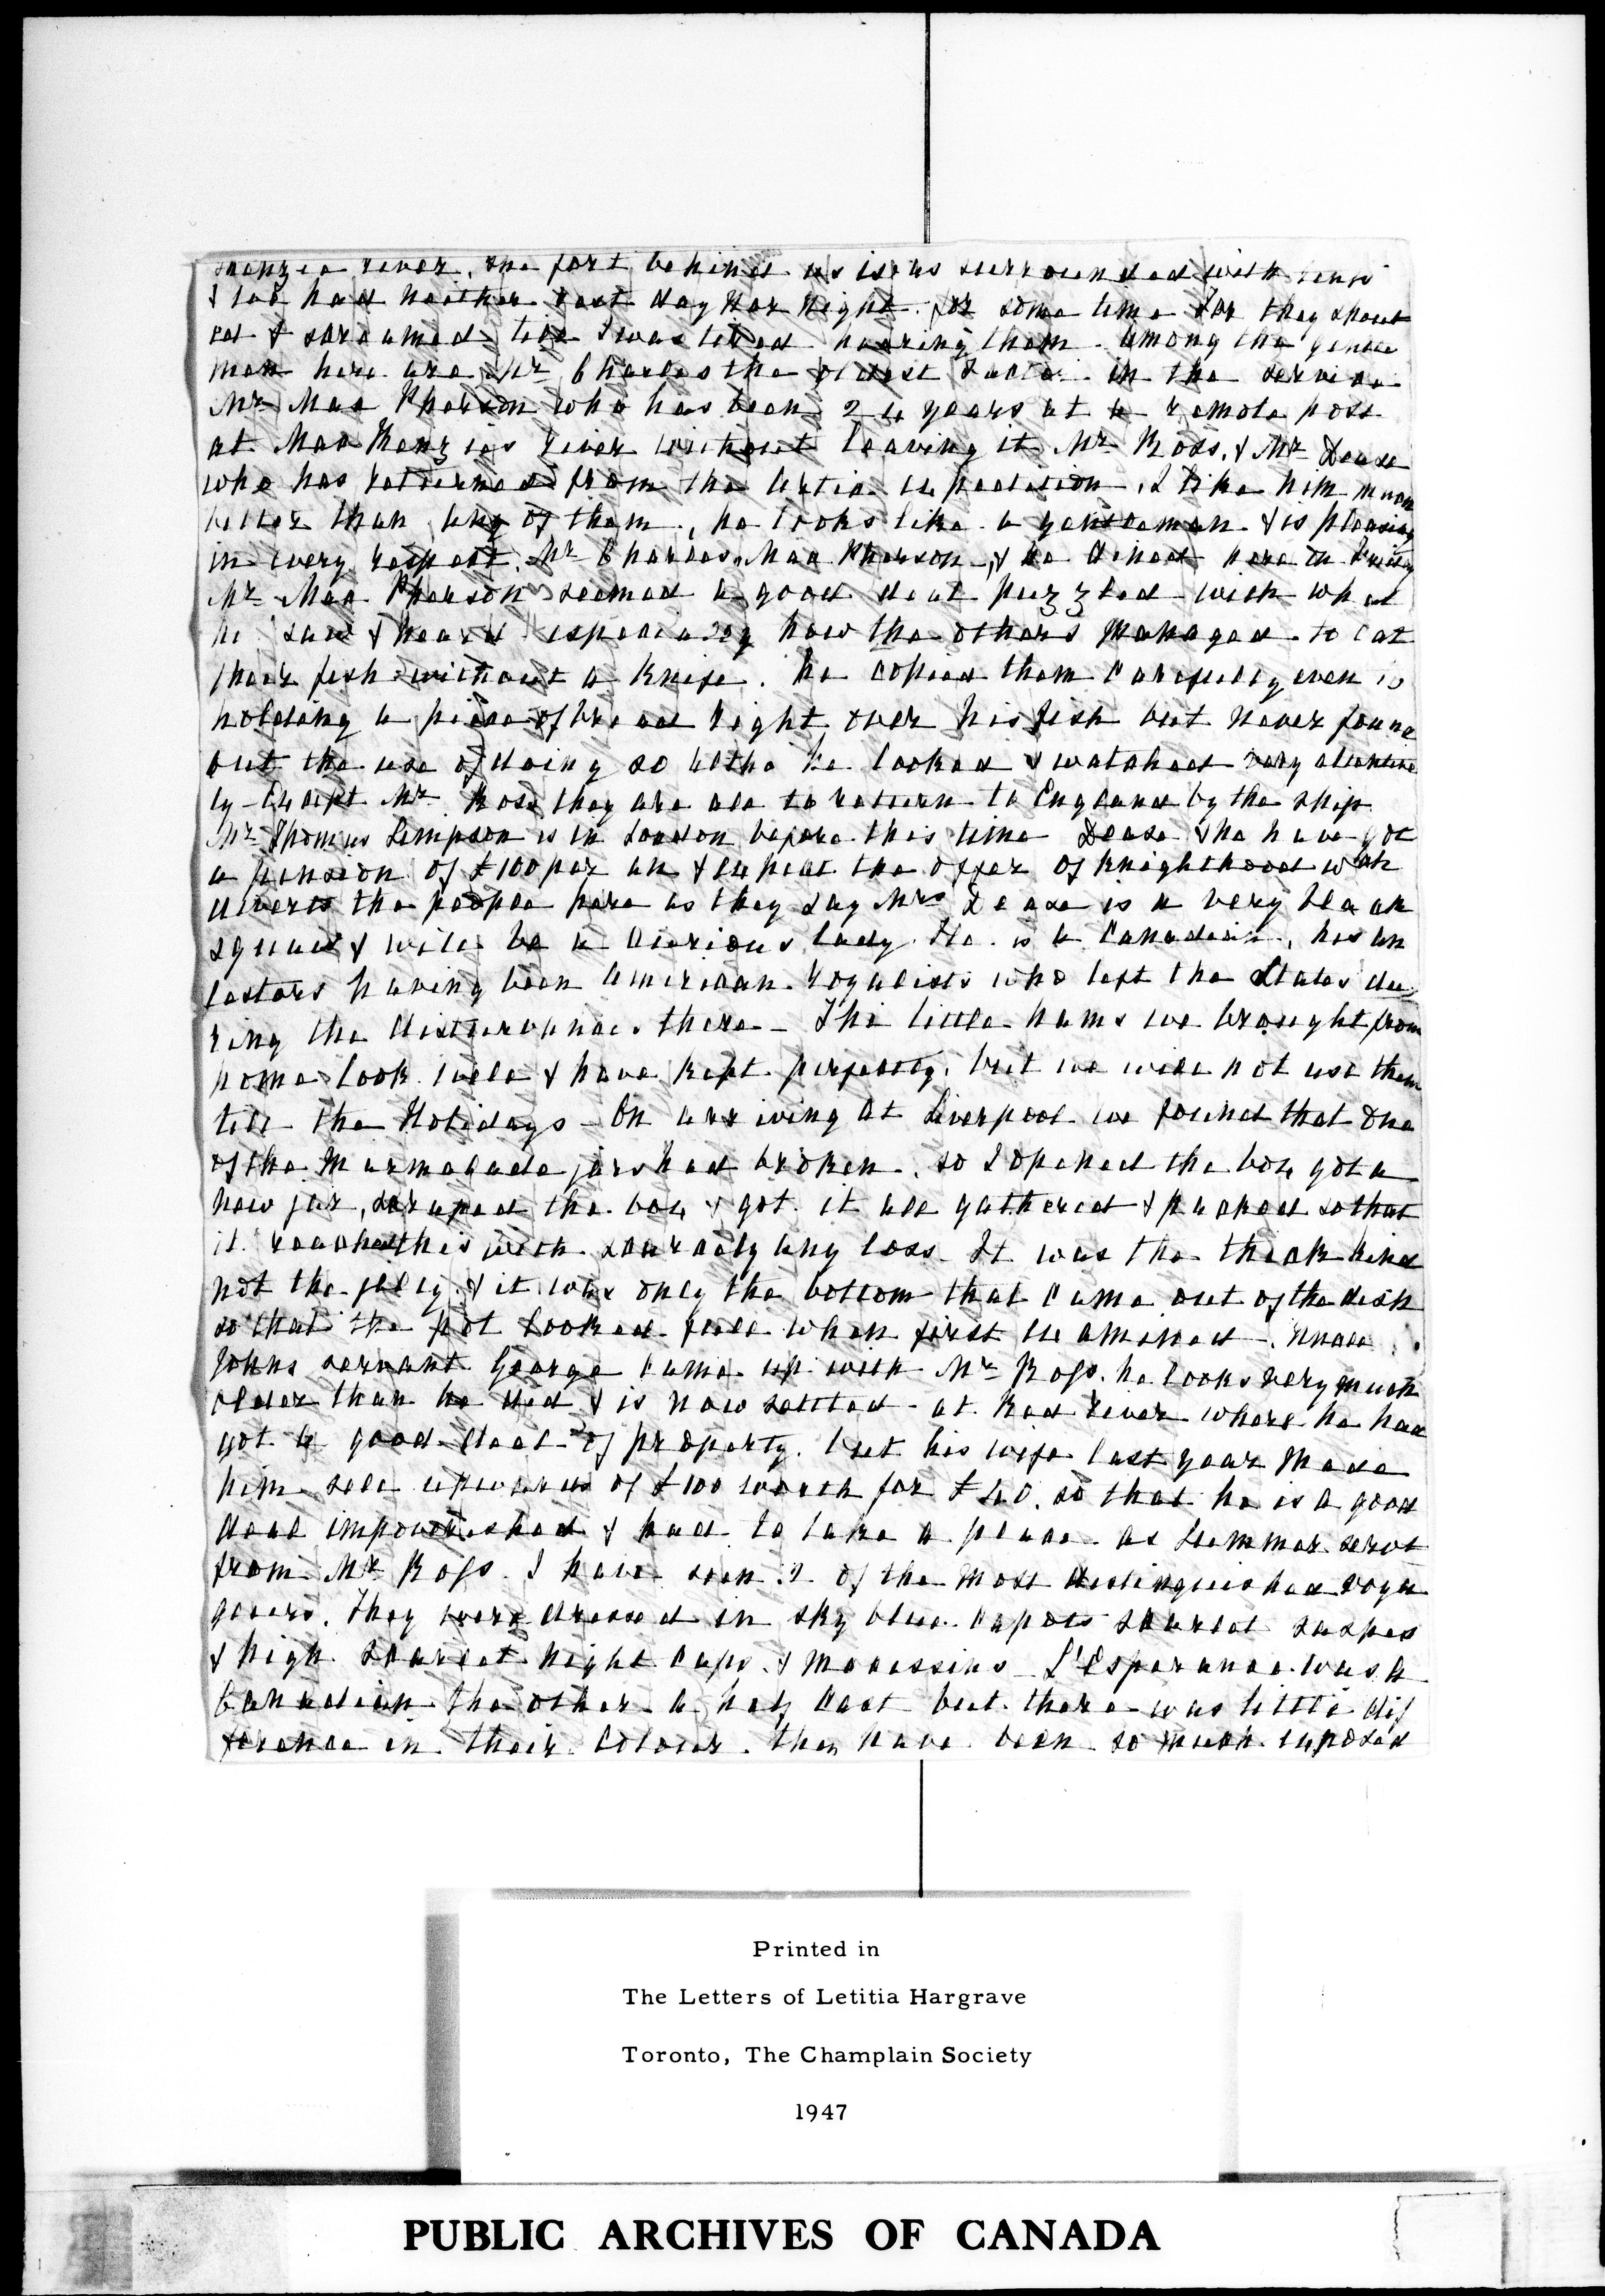 river, the fort behind us is surrounded with tents
& had neither rest day nor night for some time for they shout
ed & screamed till I was tired hearing them. Among the gentle
men here are Mr Charles the oldest Factor in the service
Mr Mac Pherson who has been 24 years at a remote post
at MacKenzies river without leaving it Mr Ross, & Mr Dease
who has returned from the Artic expedition, I like him much
better than any of them, he looks like a gentleman & is pleasing
in every respect. Mr Charles, Mac Pherson, & he dined here on Friday
Mr Mac Pherson seemed a good deal puzzled with what
he saw & heard especially how the others managed to eat
their fish without a knife. he copied them carefully even to
holding a piece of bread right over his fish but never found
out the use of doing so altho he looked & watched very attentive
ly - Except Mr Ross they are all to return to England by the ship
Mr Thomas Simpson is in London before this time Dease & he have got
a pension of £100 per an & expect the offer of knighthood wch
diverts the people here as they say Mrs Dease is a very black
squaw & will be a curious lady. He is a Canadian, his an
cestors having been American royalists who left the States du
ring the disturbance there - The little hams we brought from
home look well & have kept perfectly, but we will not use them
till the Holidays - On arriving at Liverpool we found that one
of the marmalade jars had broken, so I opened the box got a
new jar, scraped the box & got it all gathered & packed so that
it reached this with scarcely any loss. It was the thick kind
not the jelly & it was only the bottom that came out of the dish
so that the pot looked full when first examined. Uncle
Johns servant George came up with Mr Ross. he looks very much
older than he did & is now settled at Red river where he had
got a good deal of property. but his wife last year made
him sell upwards of £100 worth for £40. so that he is a good
deal impoverished & had to take a place as Summer servt
from Mr Ross. I have seen 2 of the most distinguished voya
geurs. They were dressed in sky blue capots scarlet sashes
& high scarlet night caps & mocassins - L'Esperance was a
Canadian the other a half cast but there was little dif
ference in their colour. they have been so much exposed
Printed in
The Letters of Letitia Hargrave
Toronto, The Champlain Society
1947
PUBLIC ARCHIVES OF CANADA